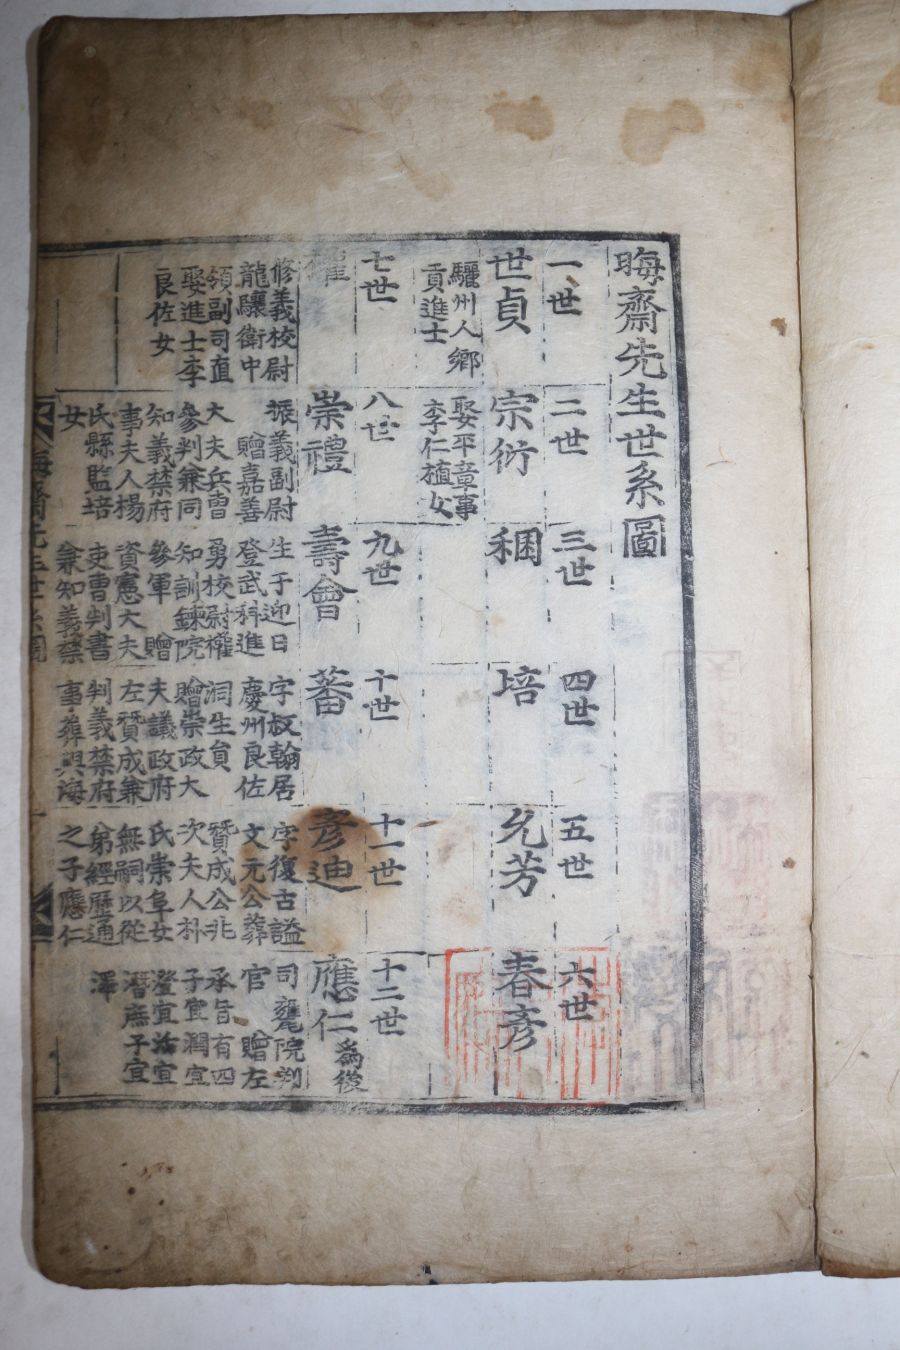 晦齋先生世系圖
一世
世貞
驪州人鄉
貢進士
二世
宗衍
娶平章事
李仁植女
三世
稛
四世
培
五世
允芳
六世
春彦
七世
權
修義校尉
龍驤衛中
領副司直
娶進士李
良佐女
八世
崇禮
振義副尉
贈嘉善
大夫兵曹
參判兼同
知義禁府
事夫人楊
氏縣監培
女
九世
壽會
生子迎日
登武科進
勇校尉權
知訓鍊院
參軍 贈
資憲大夫
吏曹判書
兼知義禁
十世
蕃
字叔翰居
慶州良佐
洞生員
贈崇政大
夫議政府
左贊成兼
判義禁府
事葬興海
十一世
彦迪
字復古諡
文元公葬
贊成公兆
次夫人朴
氏崇阜女
無嗣以從
弟經歷通
之子應仁
十二世
應仁爲後
司甕院判
官 贈左
承旨有四
子宜潤宜
澄宜活宜
潛庶子宜
澤
晦齋先生世系圖